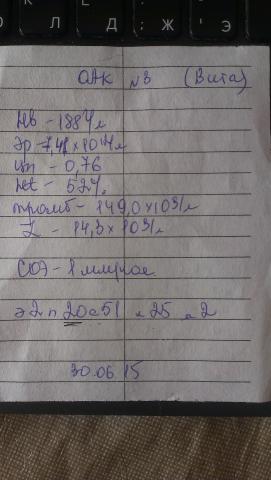 Л Д Ж Э
ОАК №3 (Вита)
Hb - 188 г/л
Эр - 7,41 x 10 12/л
цп - 0,76
Ht - 52%
тромб - 149,0 x 10 9/л
L - 14,3 x 10 9/л
СОЭ - 1 мм/час
э2 п 20 с 51 л 25 м 2
30.06 15